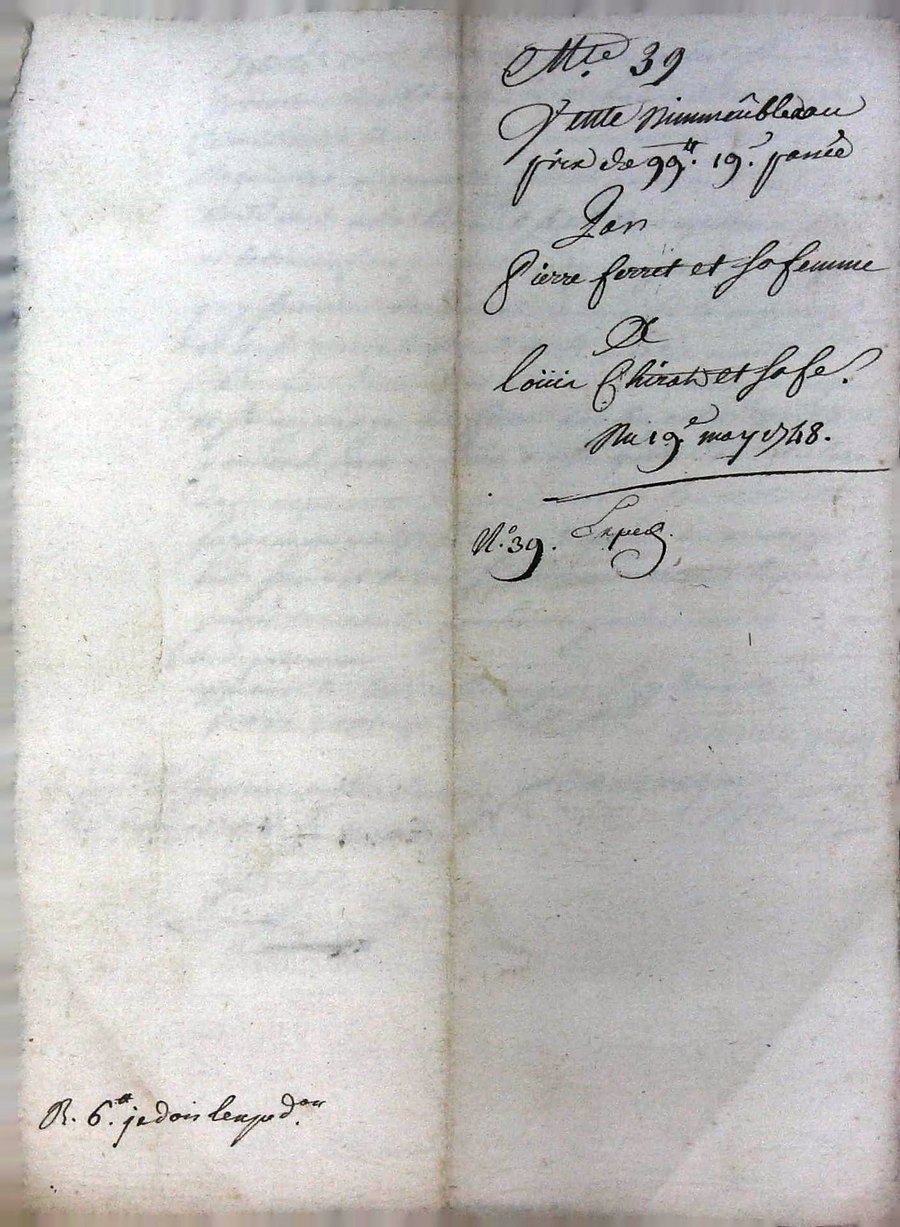 Mte. 39
Vente d'immeubles au
prix de 99 ₶. 19 s. païée
Par
Pierre ferret et sa femme
A
loüis Chirat et sa fe.
Du 19e. may 1748.
N.o 39. Exped.
R. 6 ₶. je dois lexpedon.